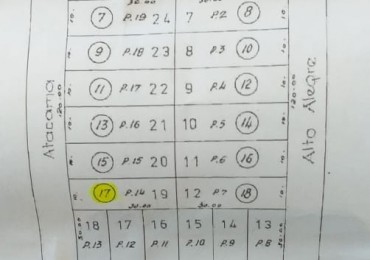 30.00 30.00
7 P.19 24 7 P.2 8
9 P.18 23 8 P.3 10
11 P.17 22 9 P.4 12
13 P.16 21 10 P.5 14
15 P.15 20 11 P.6 16
17 P.14 19 12 P.7 18
30.00 30.00
18 17 16 15 14 13
P.13 P.12 P.11 P.10 P.9 P.8
Atacama
120.00
120.00
Alto Alegre